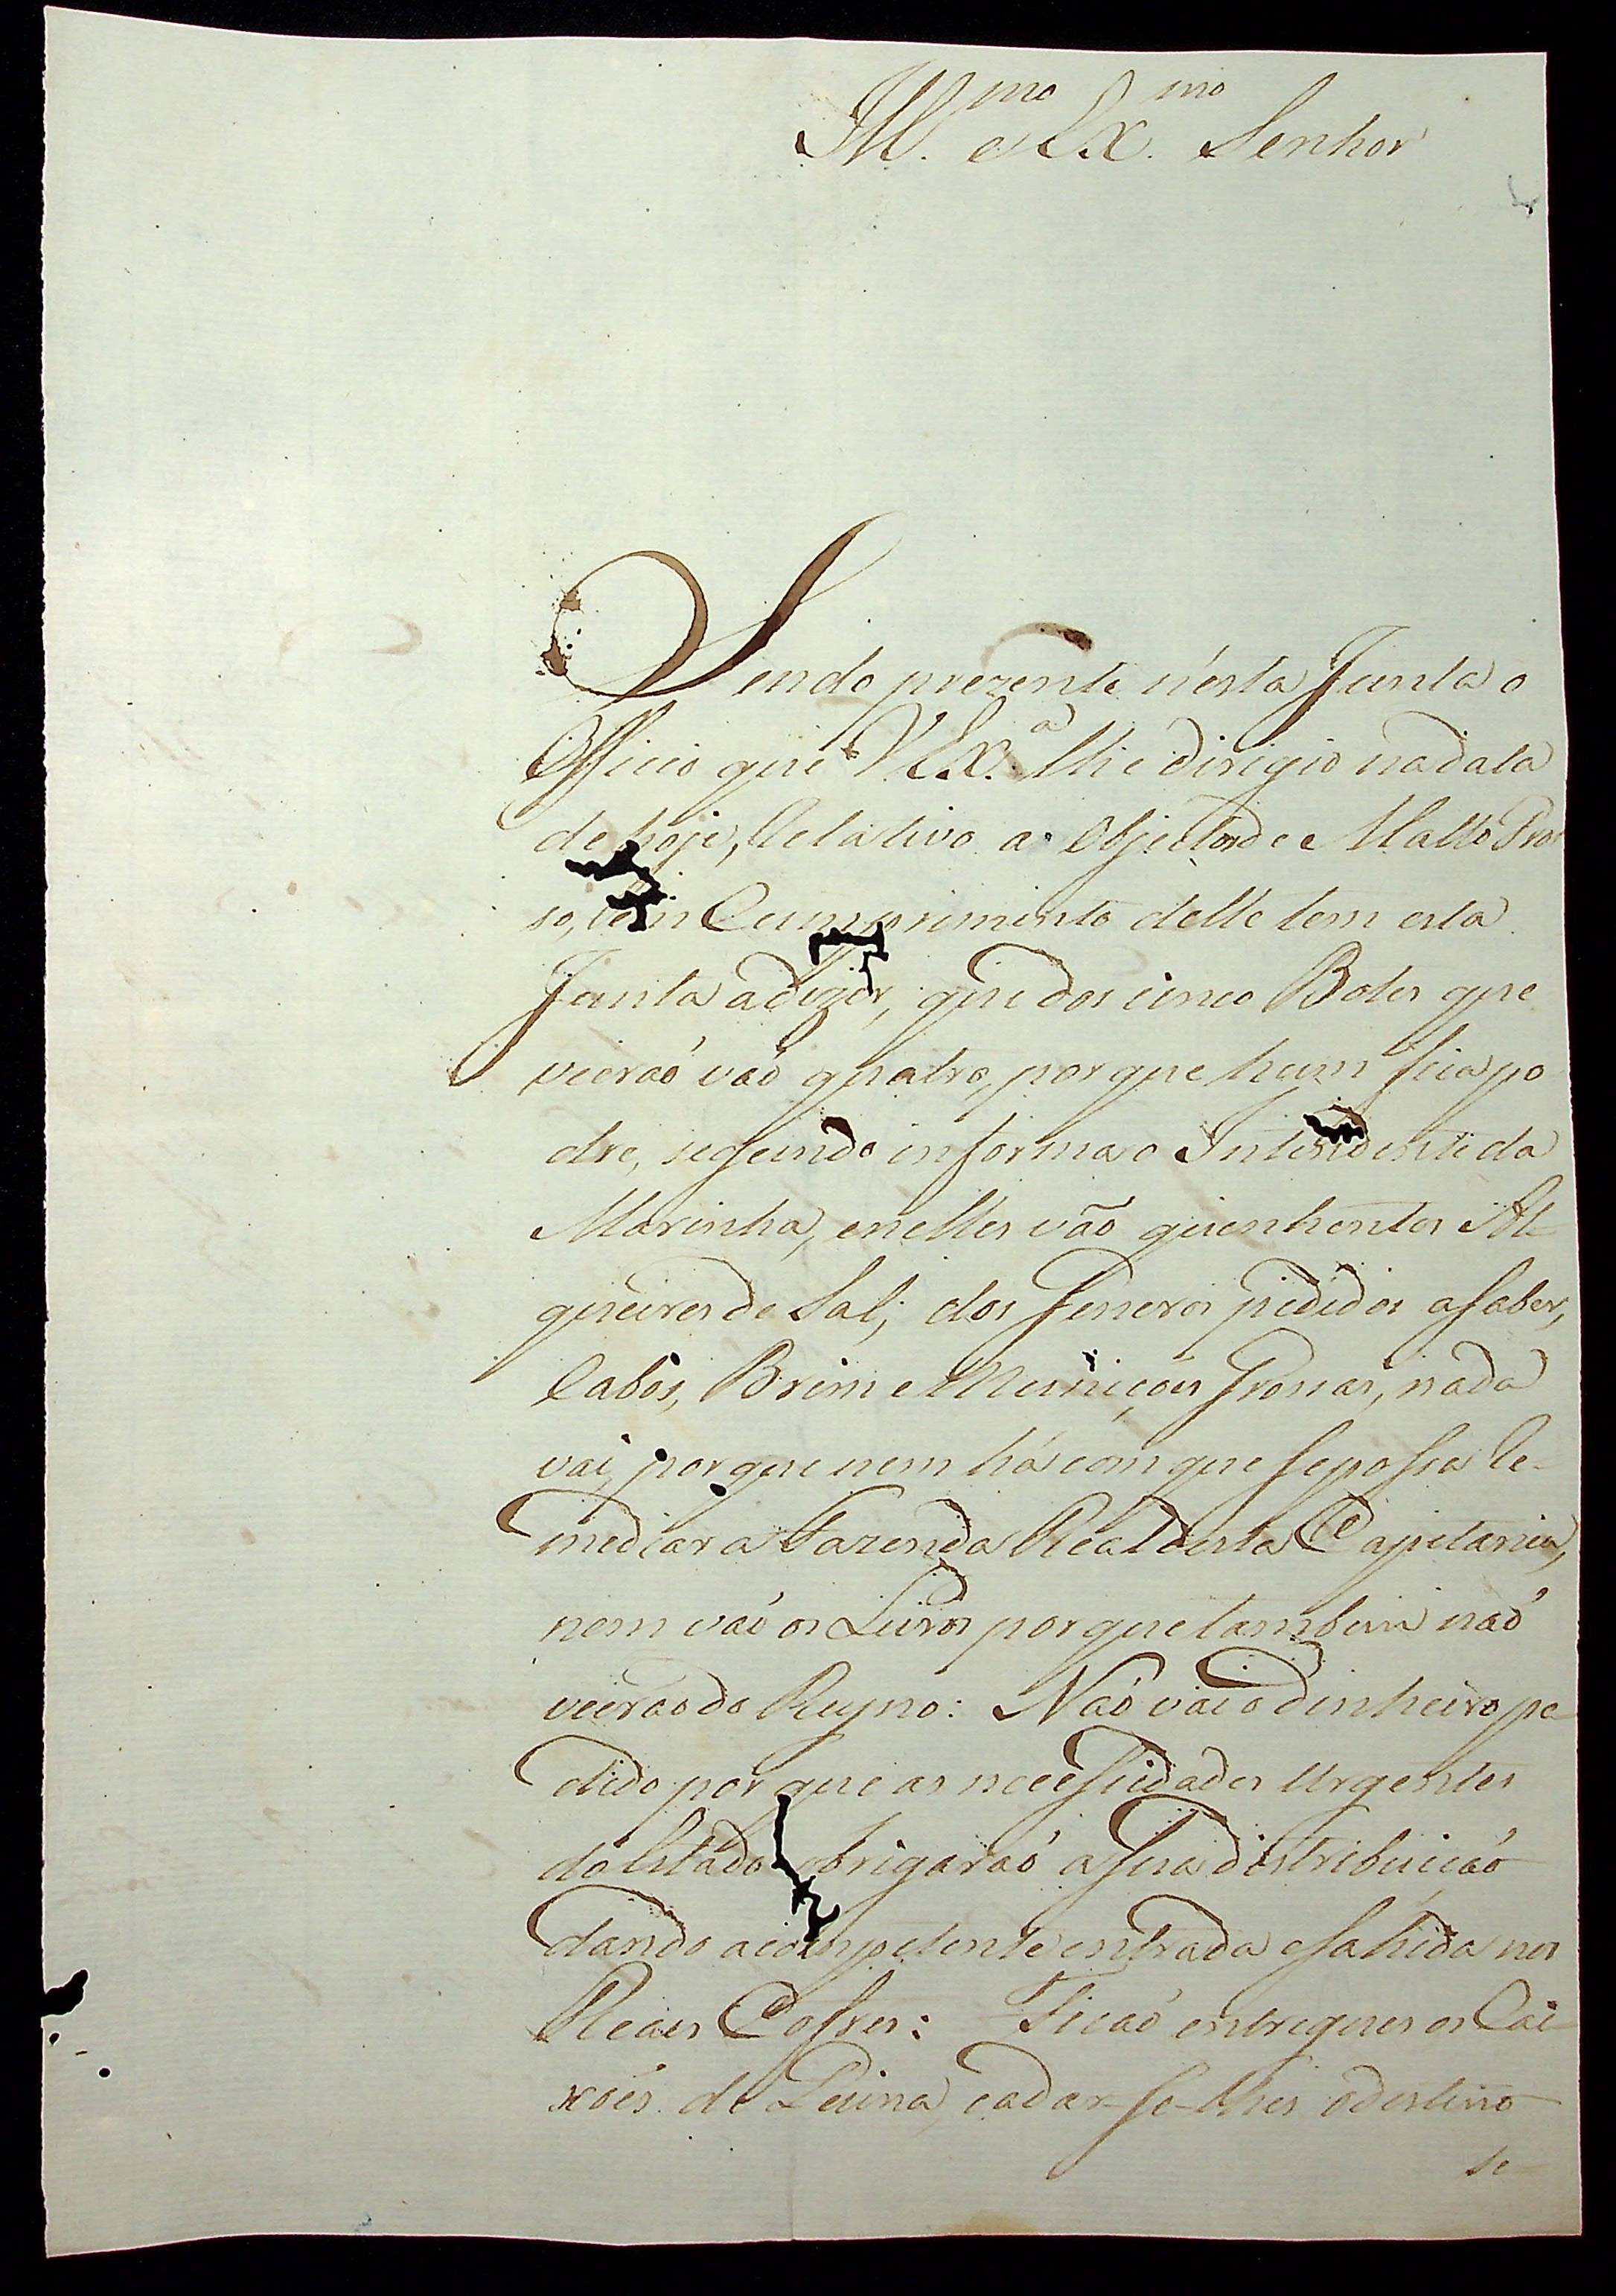 Ill.mo e Ex.mo Senhor
Sendo prezente nésta Junta o
Officio que V. Ex.a lhe dirigio nadata
de hoje, Relativo a Objectos de Matto Gros
so, e em Cumprimento delle tem esta
Junta adizer, que dos cinco Botes que
vieraõ vaõ quatro, porque hum fica po
dre, segundo informa o Intendente da
Marinha, enelles vaõ quenhentos Al-
queires de Sal; dos Generos pedidos asaber,
Cabos, Brim e Muniçoẽs Grossas, nada
vai, porque nem há com que sepossa Re-
mediar a Fazenda Real desta Capitania,
nem vaõ os Livros porque tambem naõ
vieraõ do Reyno: Naõ vai o dinheiro pe-
dido por que as necessidades Urgentes
do Estado obrigaraõ asua distribuiçaõ
dando acompetente entrada esahida nos
Reaes Cofres: Ficaõ entregues os Cai-
xoẽs de Quina, eadar-se-lhes odestino
se